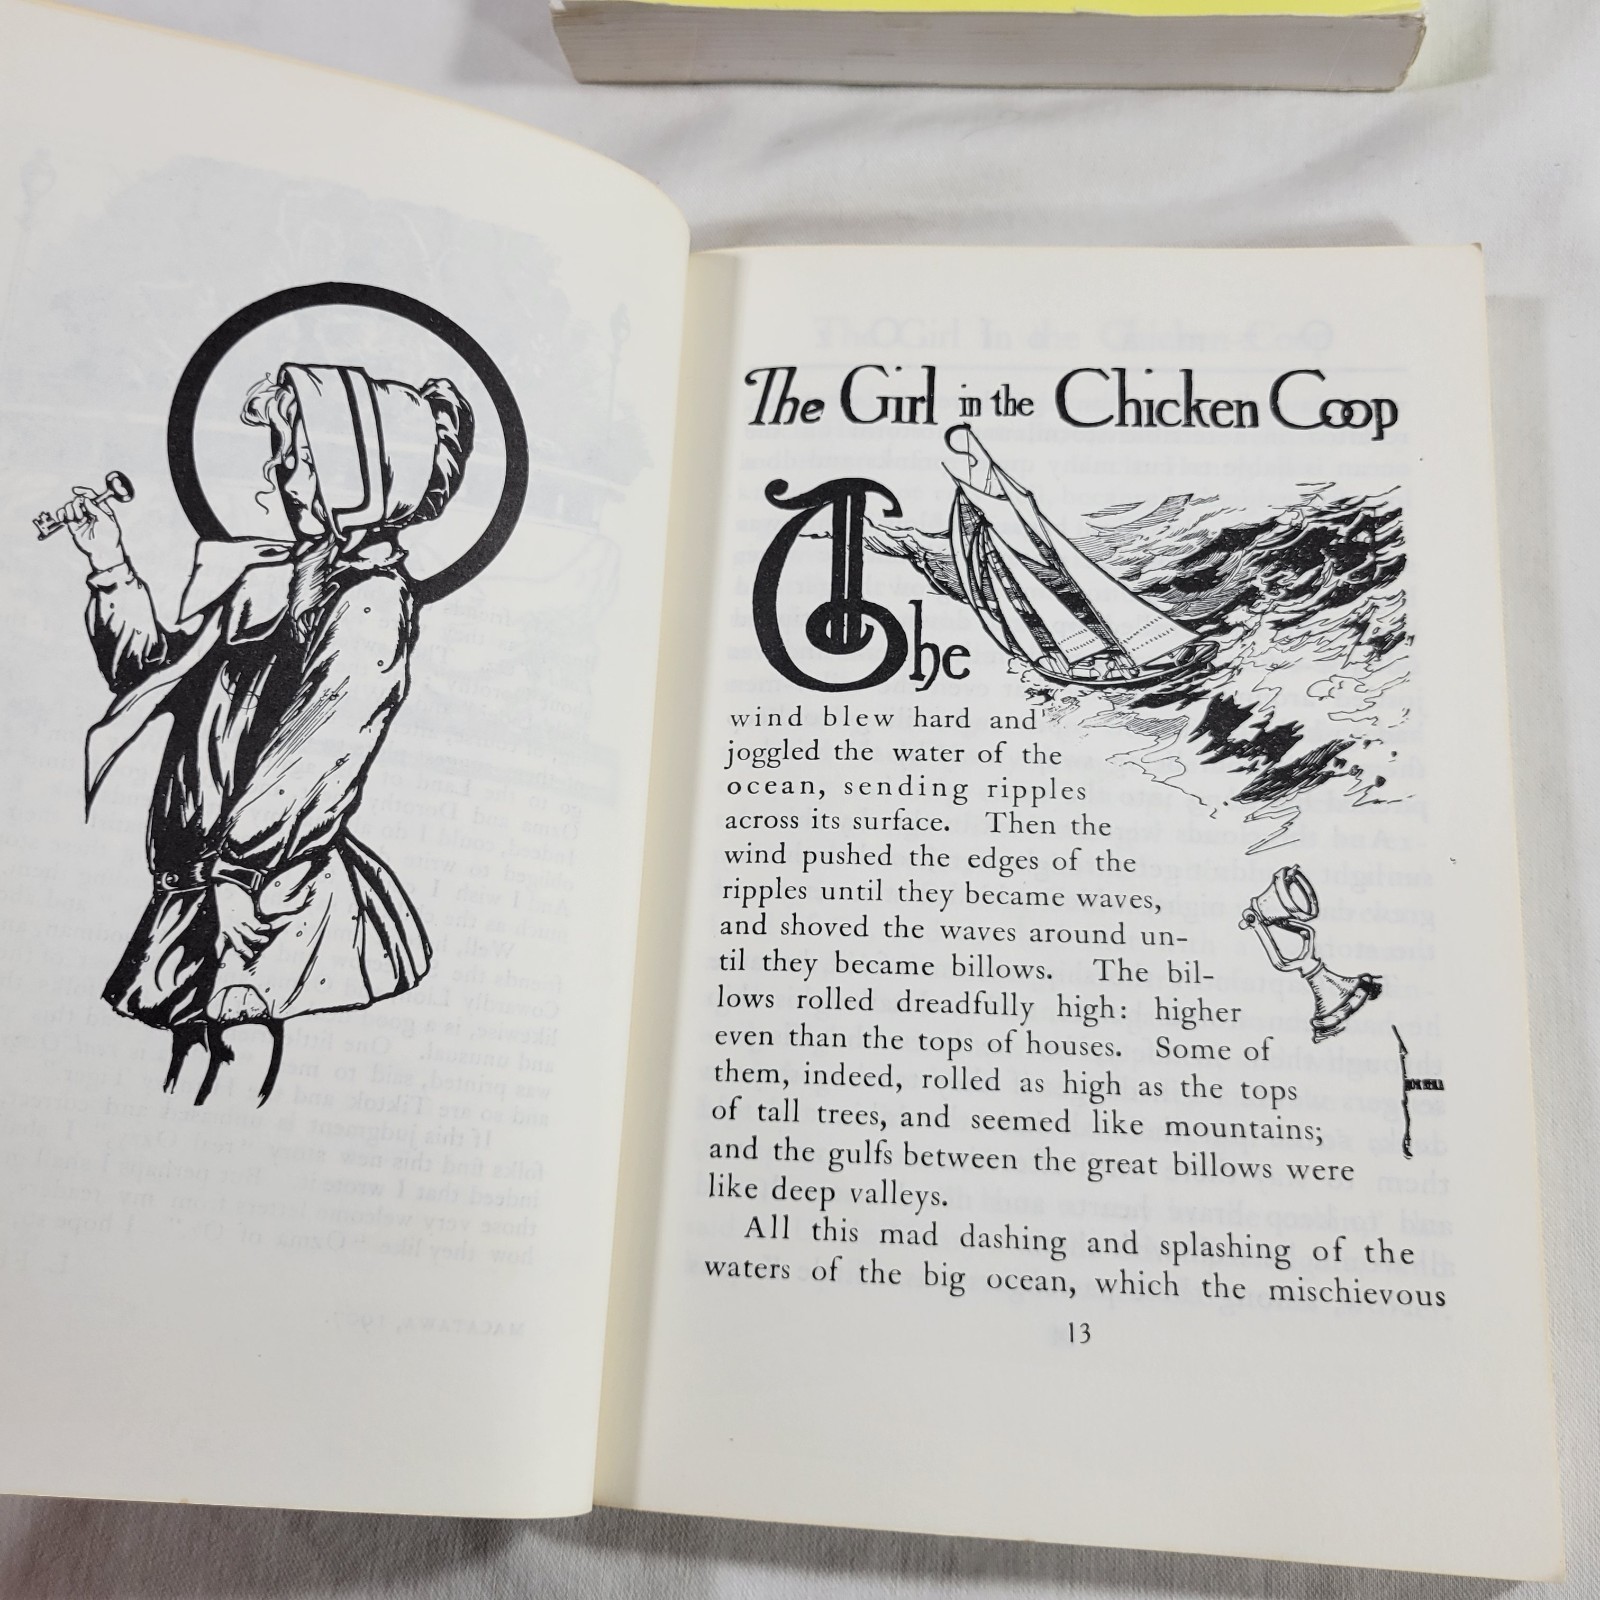 The Girl in the Chicken Coop
The
wind blew hard and
joggled the water of the
ocean, sending ripples
across its surface. Then the
wind pushed the edges of the
ripples until they became waves,
and shoved the waves around un-
til they became billows. The bil-
lows rolled dreadfully high: higher
even than the tops of houses. Some of
them, indeed, rolled as high as the tops
of tall trees, and seemed like mountains;
and the gulfs between the great billows were
like deep valleys.
All this mad dashing and splashing of the
waters of the big ocean, which the mischievous
13